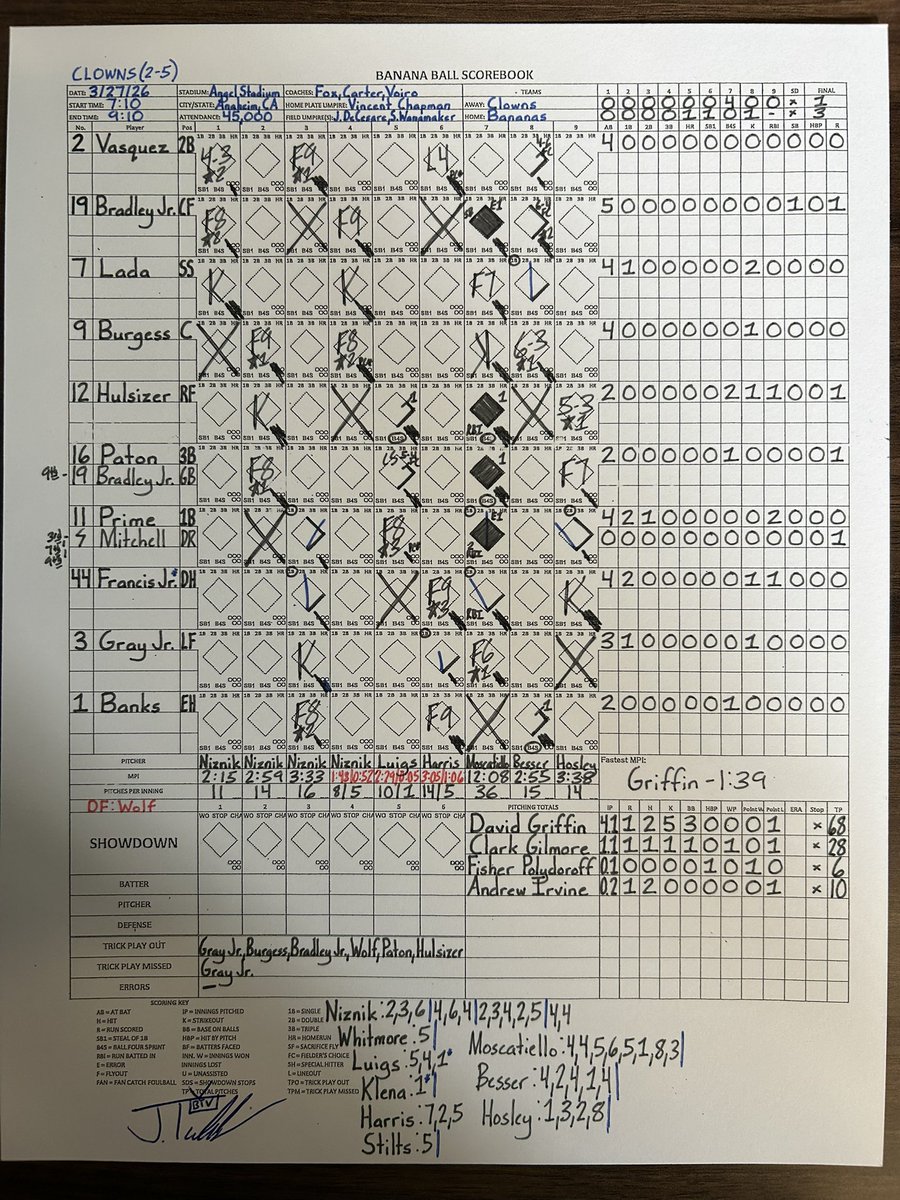 CLOWNS (2-5)
BANANA BALL SCOREBOOK
DATE: 3/27/26 STADIUM: Angel Stadium COACHES: Fox, Carter, Voiro - TEAMS 1 2 3 4 5 6 7 8 9 SD FINAL
START TIME: 7:10 CITY/STATE: Anaheim, CA HOME PLATE UMPIRE: Vincent Chapman AWAY: Clowns 0 0 0 0 0 0 4 0 0 x 1
END TIME: 9:10 ATTENDANCE: 45,000 FIELD UMPIRE(S): J. DeCesare, S. Wanamaker HOME: Bananas 0 0 0 0 1 1 0 1 - x 3
No. Player Pos 1 2 3 4 5 6 7 8 9 AB 1B 2B 3B HR SB1 B4S K RBI SB HBP R
2 Vasquez 2B 4-3 #2 F9 L4 4 0 0 0 0 0 0 0 0 0 0 0
19 Bradley Jr. CF F8 #2 F9 E1 5 0 0 0 0 0 0 0 0 1 0 1
7 Lada SS K K F7 4 1 0 0 0 0 0 2 0 0 0 0
9 Burgess C F9 #1 F8 #2 K 6-3 #1 4 0 0 0 0 0 0 1 0 0 0 0
12 Hulsizer RF K 1 1 RBI 5-3 #1 2 0 0 0 0 0 2 1 1 0 0 1
16 Paton 3B F8 #2 1 F7 2 0 0 0 0 0 1 0 0 0 0 1
9th - 19 Bradley Jr. GB
11 Prime 1B F8 #3 E1 2 RBI 4 2 1 0 0 0 0 0 2 0 0 0
5 Mitchell DR 0 0 0 0 0 0 0 0 0 0 0 1
44 Francis Jr. DH F9 #3 RBI K 4 2 0 0 0 0 0 1 1 0 0 0
3 Gray Jr. LF K F6 #1 3 1 0 0 0 0 0 1 0 0 0 0
1 Banks EH F8 #2 F9 1 2 0 0 0 0 0 1 0 0 0 0 0
PITCHER Niznik Niznik Niznik Niznik Luigs Harris Moscatiello Besser Hosley Fastest MPI:
MPI 2:15 2:59 3:33 1:43|0:52 3:05|1:06 12:08 2:55 3:38 Griffin - 1:39
PITCHES PER INNING 11 14 16 8/5 10/1 14/5 36 15 14
DF: Wolf 1 2 3 4 5 6 PITCHING TOTALS IP R H K BB HBP WP ERA Stop TP
SHOWDOWN
David Griffin 4.1 1 2 5 3 0 0 0 1 x 68
Clark Gilmore 1.1 1 1 1 1 0 1 0 1 x 28
Fisher Polydoroff 0.1 0 0 0 0 1 0 1 0 x 6
Andrew Irvine 0.2 1 2 0 0 0 0 0 1 x 10
BATTER
PITCHER
DEFENSE
TRICK PLAY OUT Gray Jr., Burgess, Bradley Jr., Wolf, Paton, Hulsizer
TRICK PLAY MISSED Gray Jr.
ERRORS —
SCORING KEY
AB = AT BAT IP = INNINGS PITCHED 1B = SINGLE
H = HIT K = STRIKEOUT 2B = DOUBLE
R = RUN SCORED BB = BASE ON BALLS 3B = TRIPLE
SB1 = STEAL OF 1B HBP = HIT BY PITCH HR = HOMERUN
B4S = BALL FOUR SPRINT BF = BATTERS FACED SF = SACRIFICE FLY
RBI = RUN BATTED IN INN. W = INNINGS WON FC = FIELDER'S CHOICE
E = ERROR INNINGS LOST SH = SPECIAL HITTER
F = FLYOUT U = UNASSISTED L = LINEOUT
FAN = FAN CATCH FOULBALL SDS = SHOWDOWN STOPS TPO = TRICK PLAY OUT
TP = TOTAL PITCHES TPM = TRICK PLAY MISSED
Niznik: 2,3,6|4,6,4|2,3,4,2,5|4,4
Whitmore: 5|
Luigs: 5,4,1
Klena: 1
Harris: 7,2,5
Stilts: 5|
Moscatiello: 4,4,5,6,5,1,8,3|
Besser: 4,2,4,1,4|
Hosley: 1,3,2,8|
BTV